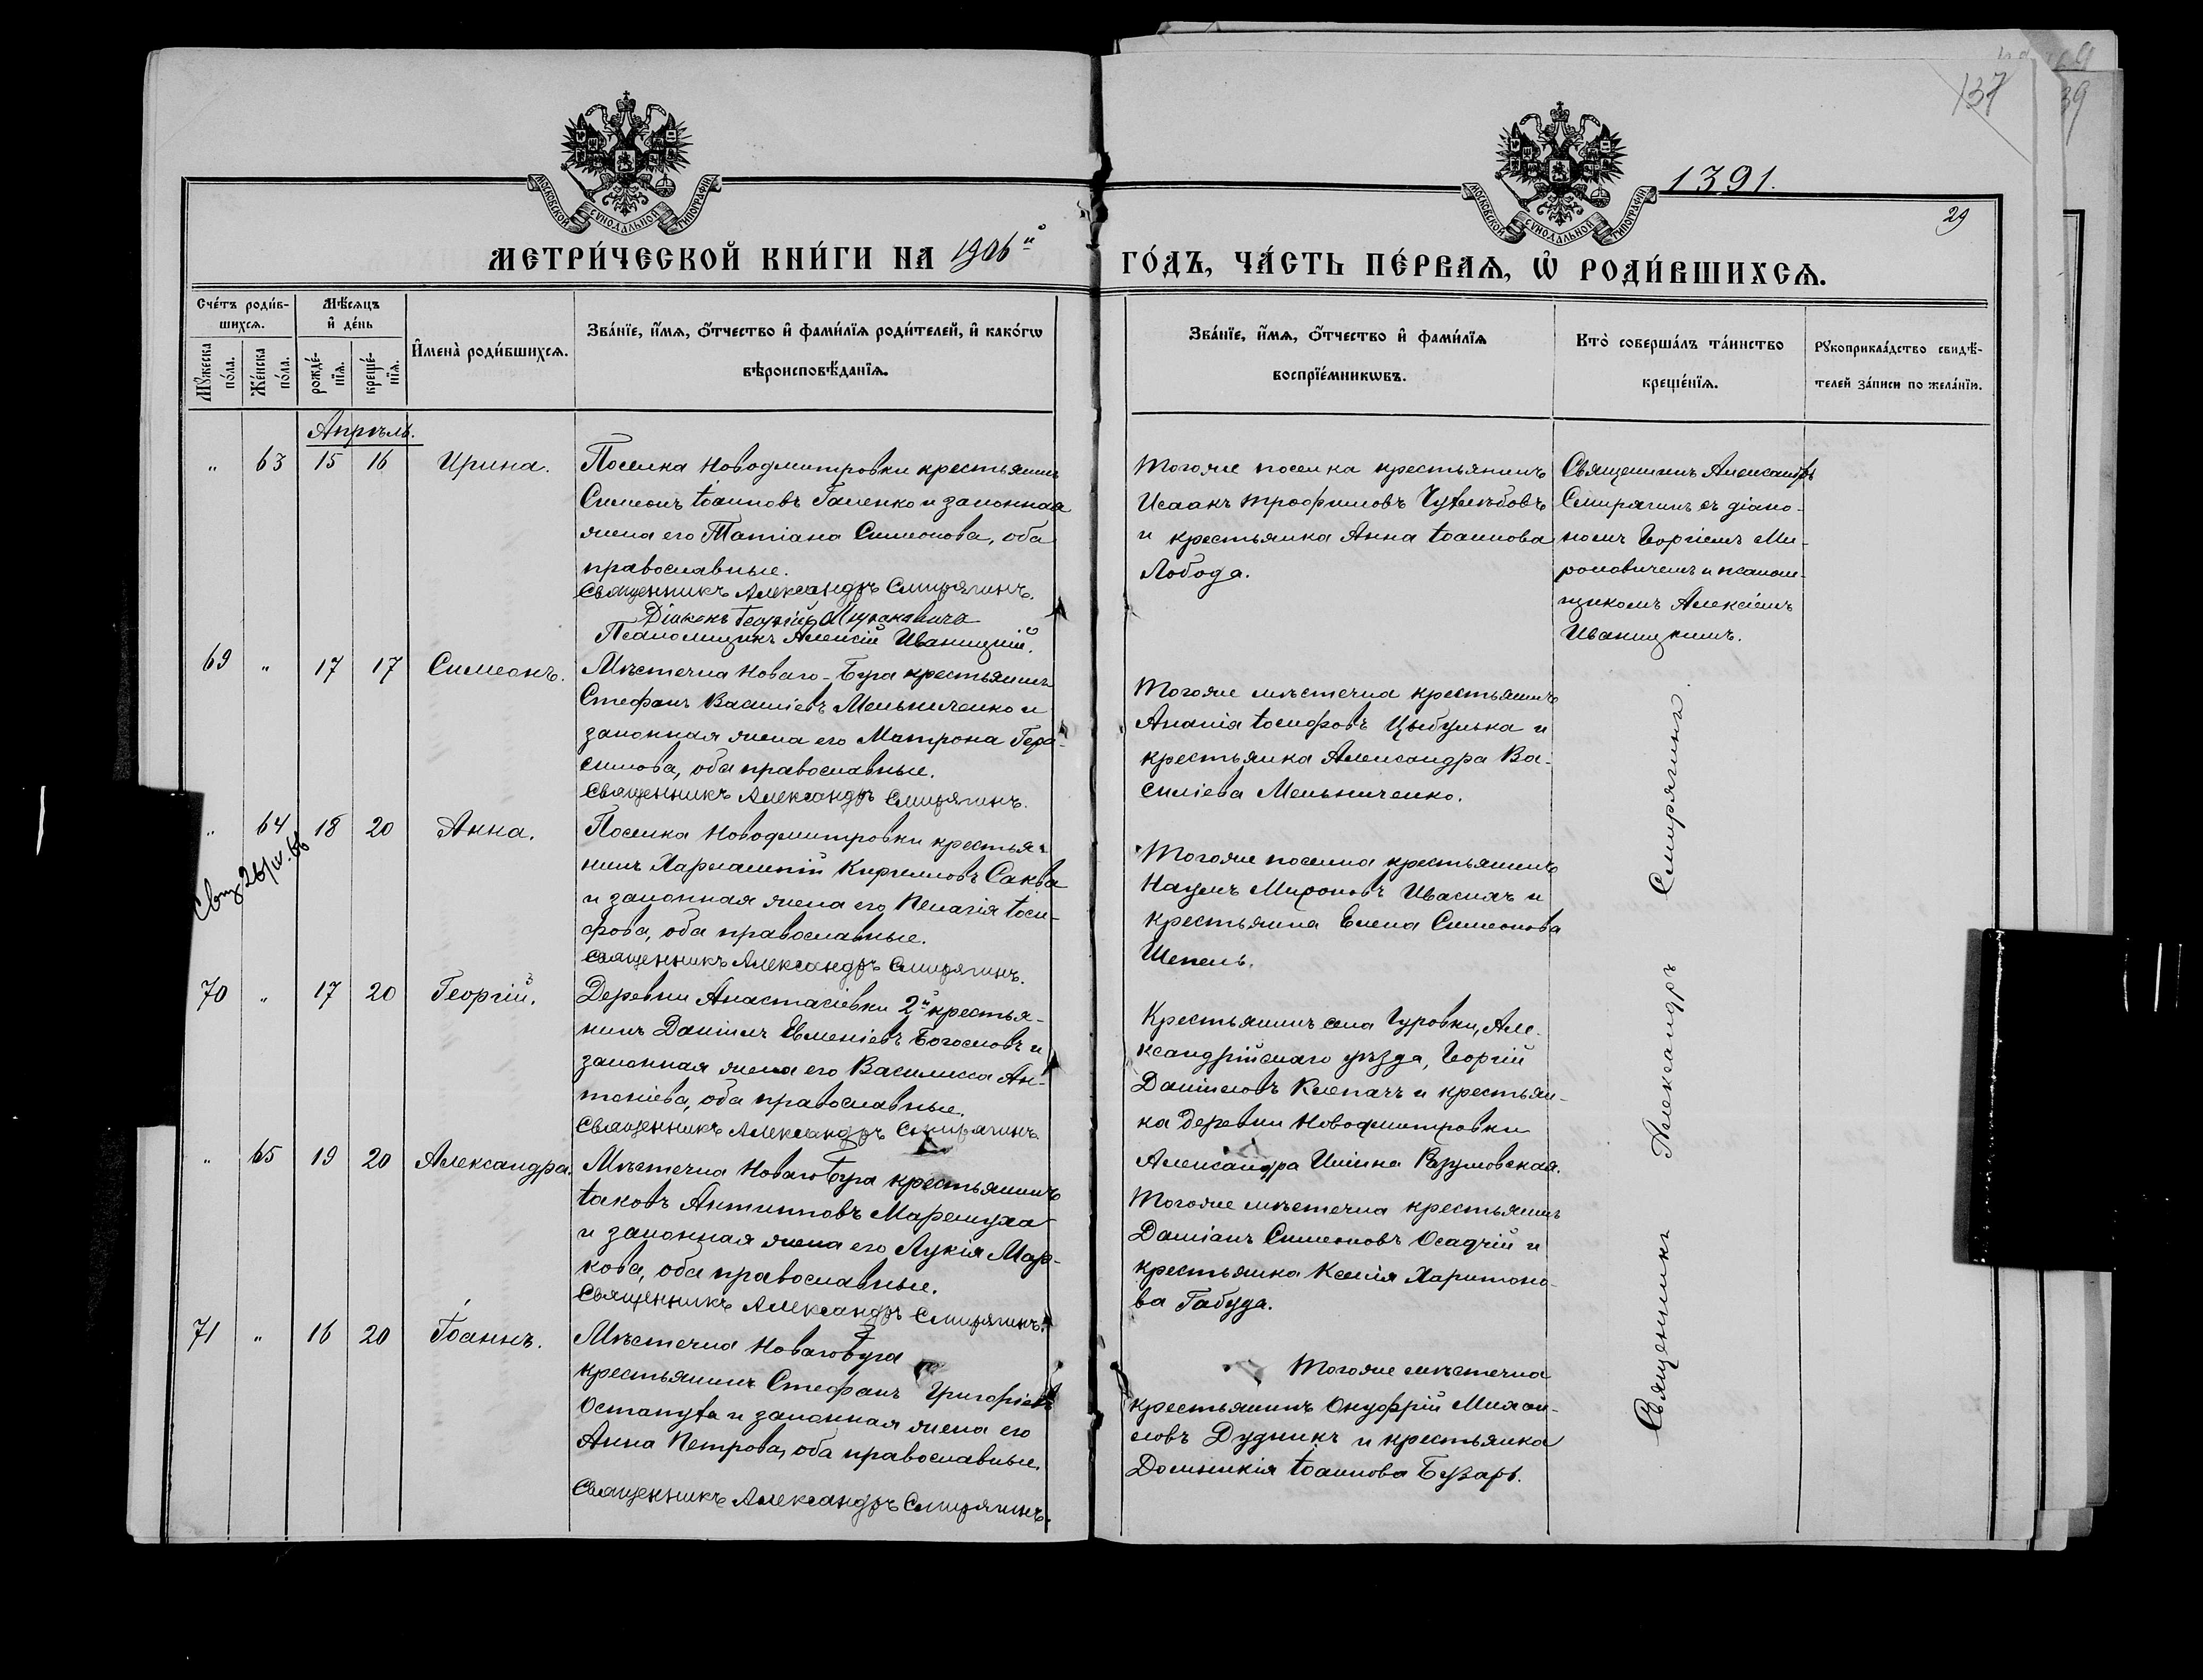 137
39
1391.
29
МОСКОВСКОЙ СѴНОДАЛЬНОЙ ТИПОГРАФІИ
МОСКОВСКОЙ СѴНОДАЛЬНОЙ ТИПОГРАФІИ
МЕТРИ́ЧЕСКОЙ КНИ́ГИ НА 1906й
ГО́ДЪ, ЧА́СТЬ ПЕ́РВАѦ, Ѽ РОДИ́ВШИХСѦ.
Сче́тъ роди́в-
шихсѧ.
Мꙋ́жеска
по́ла.
Же́нска
по́ла.
Мѣ́сѧцъ
и҆ де́нь
рожде́-
нїѧ.
креще́-
нїѧ.
И҆мена̀ роди́вшихсѧ.
Зва́нїе, и҆́мѧ, ѻ҆́тчество и҆ фами́лїѧ роди́телей, и҆ како́гѡ
вѣроисповѣ́данїѧ.
Зва́нїе, и҆́мѧ, ѻ҆́тчество и҆ фами́лїѧ
воспрїе́мникѡвъ.
Кто̀ соверша́лъ та́инство
креще́нїѧ.
Рꙋкоприкла́дство свидѣ́-
телей за́писи по жела́нїю.
Апрѣль.
„ 63 15 16 Ирина.
Поселка Новодмитровки крестьянинъ
Симеонъ Іоанновъ Галенко и законная
жена его Татіана Симеонова, оба
православные.
Священникъ Александръ Смирягинъ.
Діаконъ Георгій Мироновичъ
Псаломщикъ Алексій Иваницкій.
Тогоже поселка крестьянинъ
Исаакъ Трофимовъ
и крестьянка Анна Іоаннова
Лобода.
Священникъ Александръ
Смирягинъ съ діако-
номъ Георгіемъ Ми-
роновичемъ и псалом-
щикомъ Алексіемъ
Иваницкимъ.
69 „ 17 17 Симеонъ.
Мѣстечка Новаго-Буга крестьянинъ
Стефанъ Василіевъ Мельниченко и
законная жена его Матрона Гера-
симова, оба православные.
Священникъ Александръ Смирягинъ.
Тогоже мѣстечка крестьянинъ
Ананія Іосифовъ Цыбулька и
крестьянка Александра Ва-
силіева Мельниченко.
„ 64 18 20 Анна.
26/IV.66
Поселка Новодмитровки крестья-
нинъ Харлампій Кирилловъ Саква
и законная жена его Пелагія Іоси-
фова, оба православные.
Священникъ Александръ Смирягинъ.
Тогоже поселка крестьянинъ
Наумъ Мироновъ Ивасикъ и
крестьянка Елена Симеонова
Шепель.
70 „ 17 20 Георгій.
Деревни Анастасіевки 2й крестья-
нинъ Даніилъ Евменіевъ Богословъ и
законная жена его Василисса Ан-
тоніева, оба православные.
Священникъ Александръ Смирягинъ.
Крестьянинъ села Гуровки, Але-
ксандрійскаго уѣзда, Георгій
Даніиловъ Клепачъ и крестьян-
ка деревни Новодмитровки
Александра Ильина Разумовская.
„ 65 19 20 Александра.
Мѣстечка Новаго Буга крестьянинъ
Іаковъ Антиповъ Маремуха
и законная жена его Лукія Мар-
кова, оба православные.
Священникъ Александръ Смирягинъ.
Тогоже мѣстечка крестьянинъ
Даміанъ Симеоновъ Осадчій и
крестьянка Ксенія Харитоно-
ва Габуда.
71 „ 16 20 Іоаннъ.
Мѣстечка Новаго Буга
крестьянинъ Стефанъ Григоріевъ
и законная жена его
Анна Петрова, оба православные.
Священникъ Александръ Смирягинъ.
Тогоже мѣстечка
крестьянинъ Онуфрій Михаи-
ловъ Дудникъ и крестьянка
Домникія Іоаннова Бузарь.
Священникъ Александръ Смирягинъ.